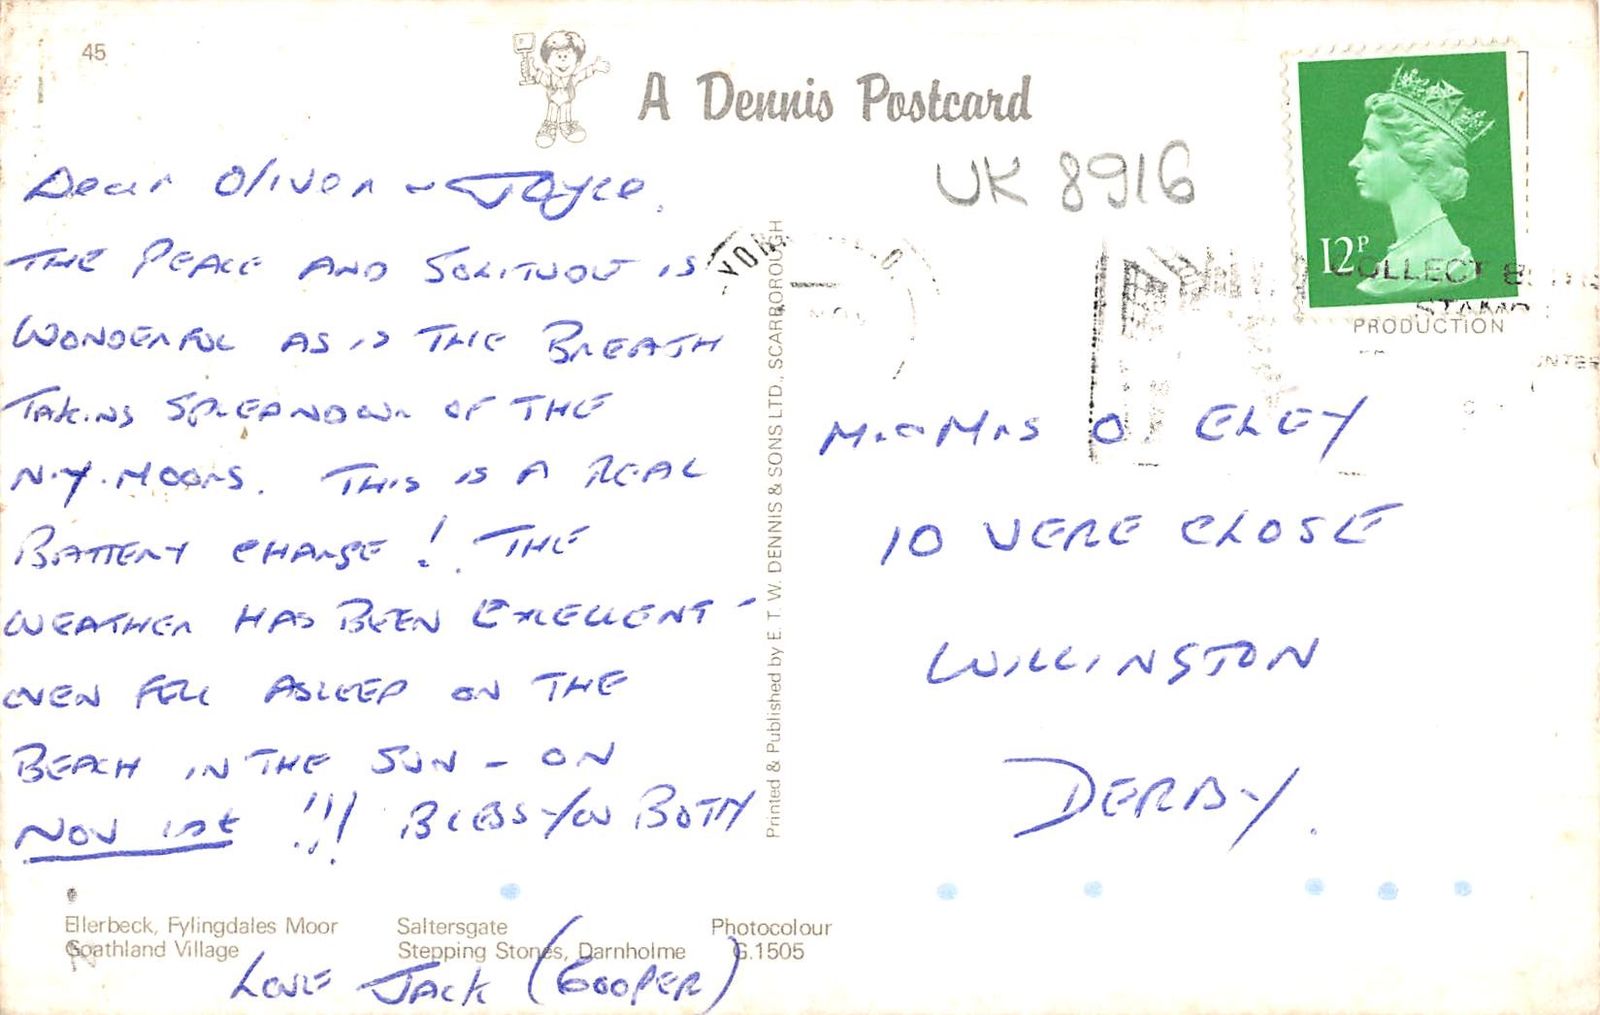 45
A Dennis Postcard
UK 8916
12P
COLLECT
STAMP
PRODUCTION
YOR
NOV
Dear Oliver & Joyce,
THE PEACE AND SOLITUDE IS
WONDERFUL AS IS THE BREATH
TAKING SPLEANDOUR OF THE
N.Y. MOORS. THIS IS A REAL
BATTERY CHARGE! THE
WEATHER HAS BEEN EXCELLENT -
EVEN FELL ASLEEP ON THE
BEACH IN THE SUN - ON
NOV 1st !!! BLESS YOU BOTH
LOVE JACK (COOPER)
Printed & Published by E. T. W. DENNIS & SONS LTD., SCARBOROUGH
Mr & Mrs O ELEY
10 VERE CLOSE
WILLINGTON
DERBY.
Ellerbeck, Fylingdales Moor Saltersgate Photocolour
Goathland Village Stepping Stones, Darnholme G.1505